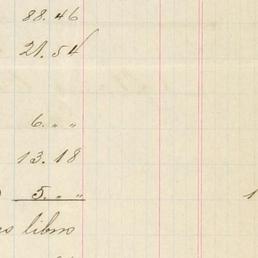 88.46
21.54
6. " "
13.18
5. " "
libro